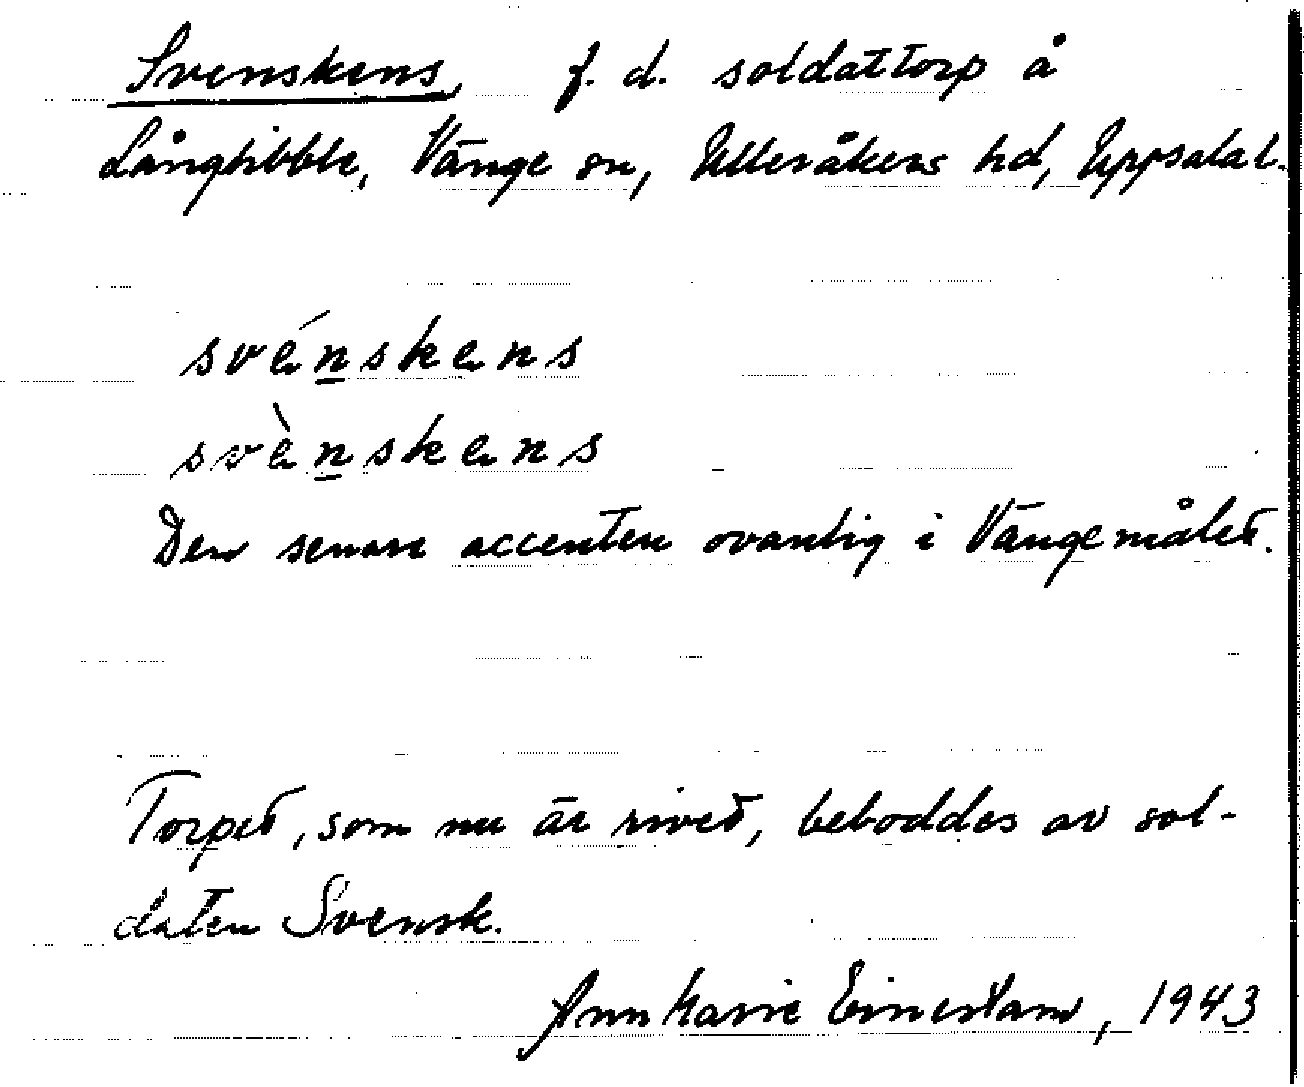 Svenskens, f. d. soldattorp å
Långtibble, Vänge sn, Ulleråkers hd, Uppsala l.
svénskens
svènskens
Den senare accenten ovanlig i Vängemålet.
Torpet, som nu är rivet, beboddes av sol-
daten Svensk.
Ann Marie Einerstam, 1943